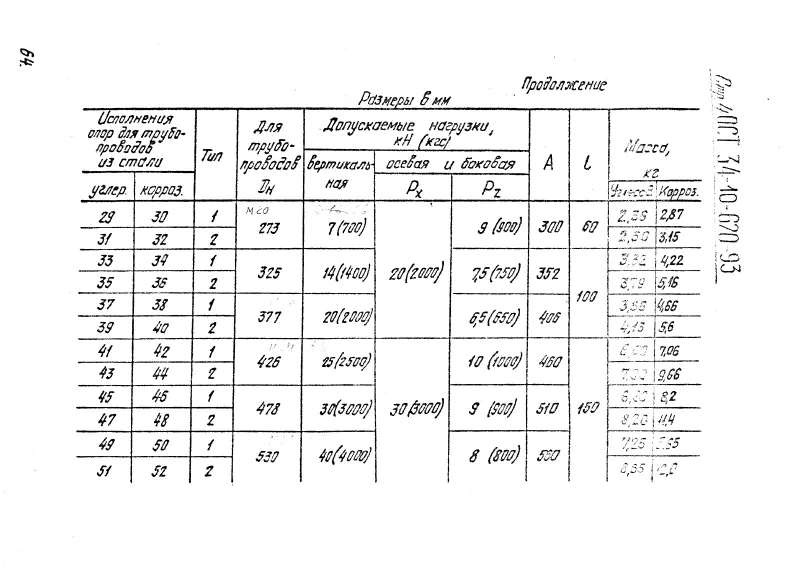 64.
Продолжение
Размеры в мм
Стр. 4 ОСТ 34-10-620-93
Исполнения опор для трубо-проводов из стали
Тип
Для трубо-проводов Dн
Допускаемые нагрузки, кН (кгс)
A
l
Масса, кг
углер. корроз.
вертикаль-ная
осевая и боковая
Px Pz
Углерод. Корроз.
29 30 1 273 7(700) 20(2000) 9 (900) 300 60 2,87
31 32 2 3,15
33 34 1 325 14(1400) 7,5(750) 352 100 4,22
35 36 2 3,79 5,16
37 38 1 377 20(2000) 6,5(650) 406 4,66
39 40 2 4,13 5,6
41 42 1 426 25(2500) 30(3000) 10 (1000) 460 150 7,06
43 44 2 9,66
45 46 1 478 30(3000) 9 (900) 510 8,2
47 48 2 8,20 11,4
49 50 1 530 40(4000) 8 (800) 7,25
51 52 2